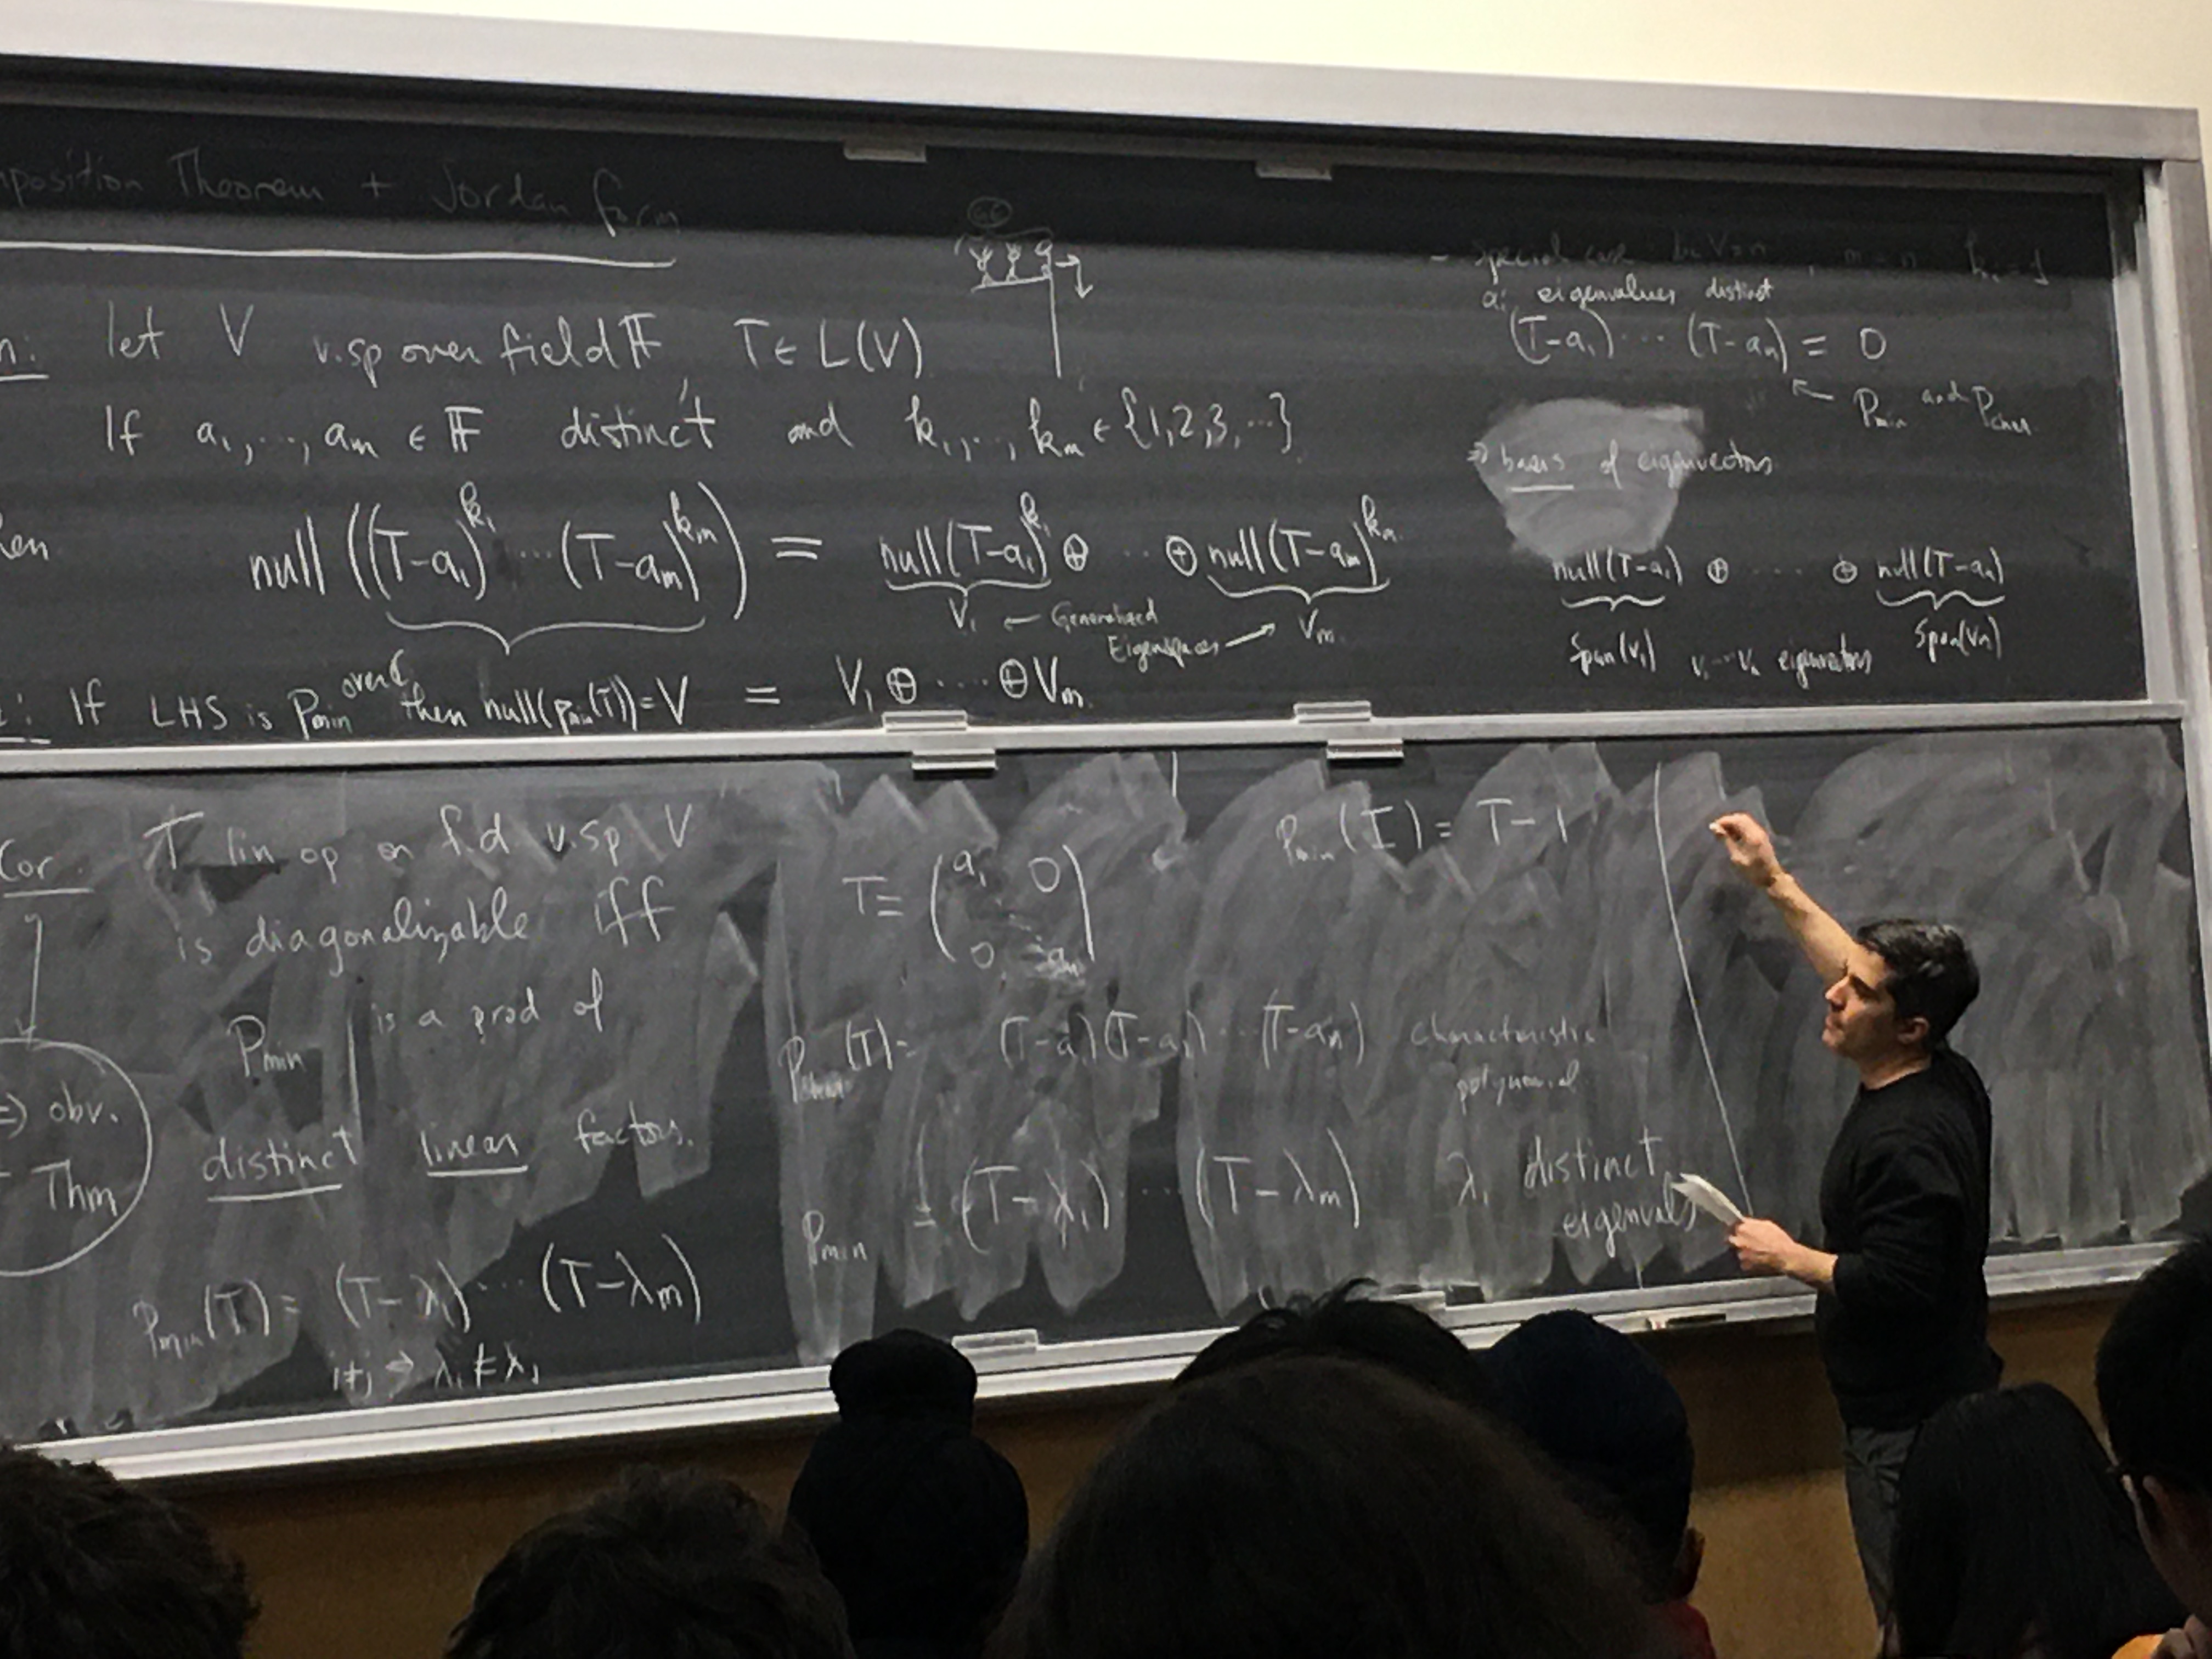 position Theorem + Jordan form
n: let V v.sp over field 𝔽, T ∈ L(V)
If a₁,..., aₘ ∈ 𝔽 distinct and k₁,.., kₘ ∈ {1,2,3,...}.
en null ((T-a₁)^k₁ ... (T-aₘ)^kₘ) = null(T-a₁)^k₁ ⊕ ... ⊕ null(T-aₘ)^kₘ
V₁ ← Generalized Eigenspaces → Vₘ
: If LHS is Pmin over ℂ then null(pmin(T)) = V = V₁ ⊕ .... ⊕ Vₘ.
- special case V=n, m=n kᵢ=1
aᵢ eigenvalues distinct
(T-a₁) ... (T-aₙ) = 0
← Pmin and Pchar
⇒ basis of eigenvectors
null(T-a₁) ⊕ .... ⊕ null(T-aₙ)
Span(v₁) v₁...vₙ eigenvectors Span(vₙ)
Cor. T lin op on f.d v.sp V
is diagonalizable iff
Pmin is a prod of
distinct linear factors.
⇒) obv.
Thm
Pmin(T) = (T-λ₁) ... (T-λₘ)
i≠j ⇒ λᵢ ≠ λⱼ
T = (a₁ 0
0 aₙ)
Pmin(I) = T-1
Pchar(T) = (T-a₁)(T-a₁) ... (T-aₙ) characteristic
polynomial
Pmin = (T-λ₁) ... (T-λₘ) λᵢ distinct
eigenvals